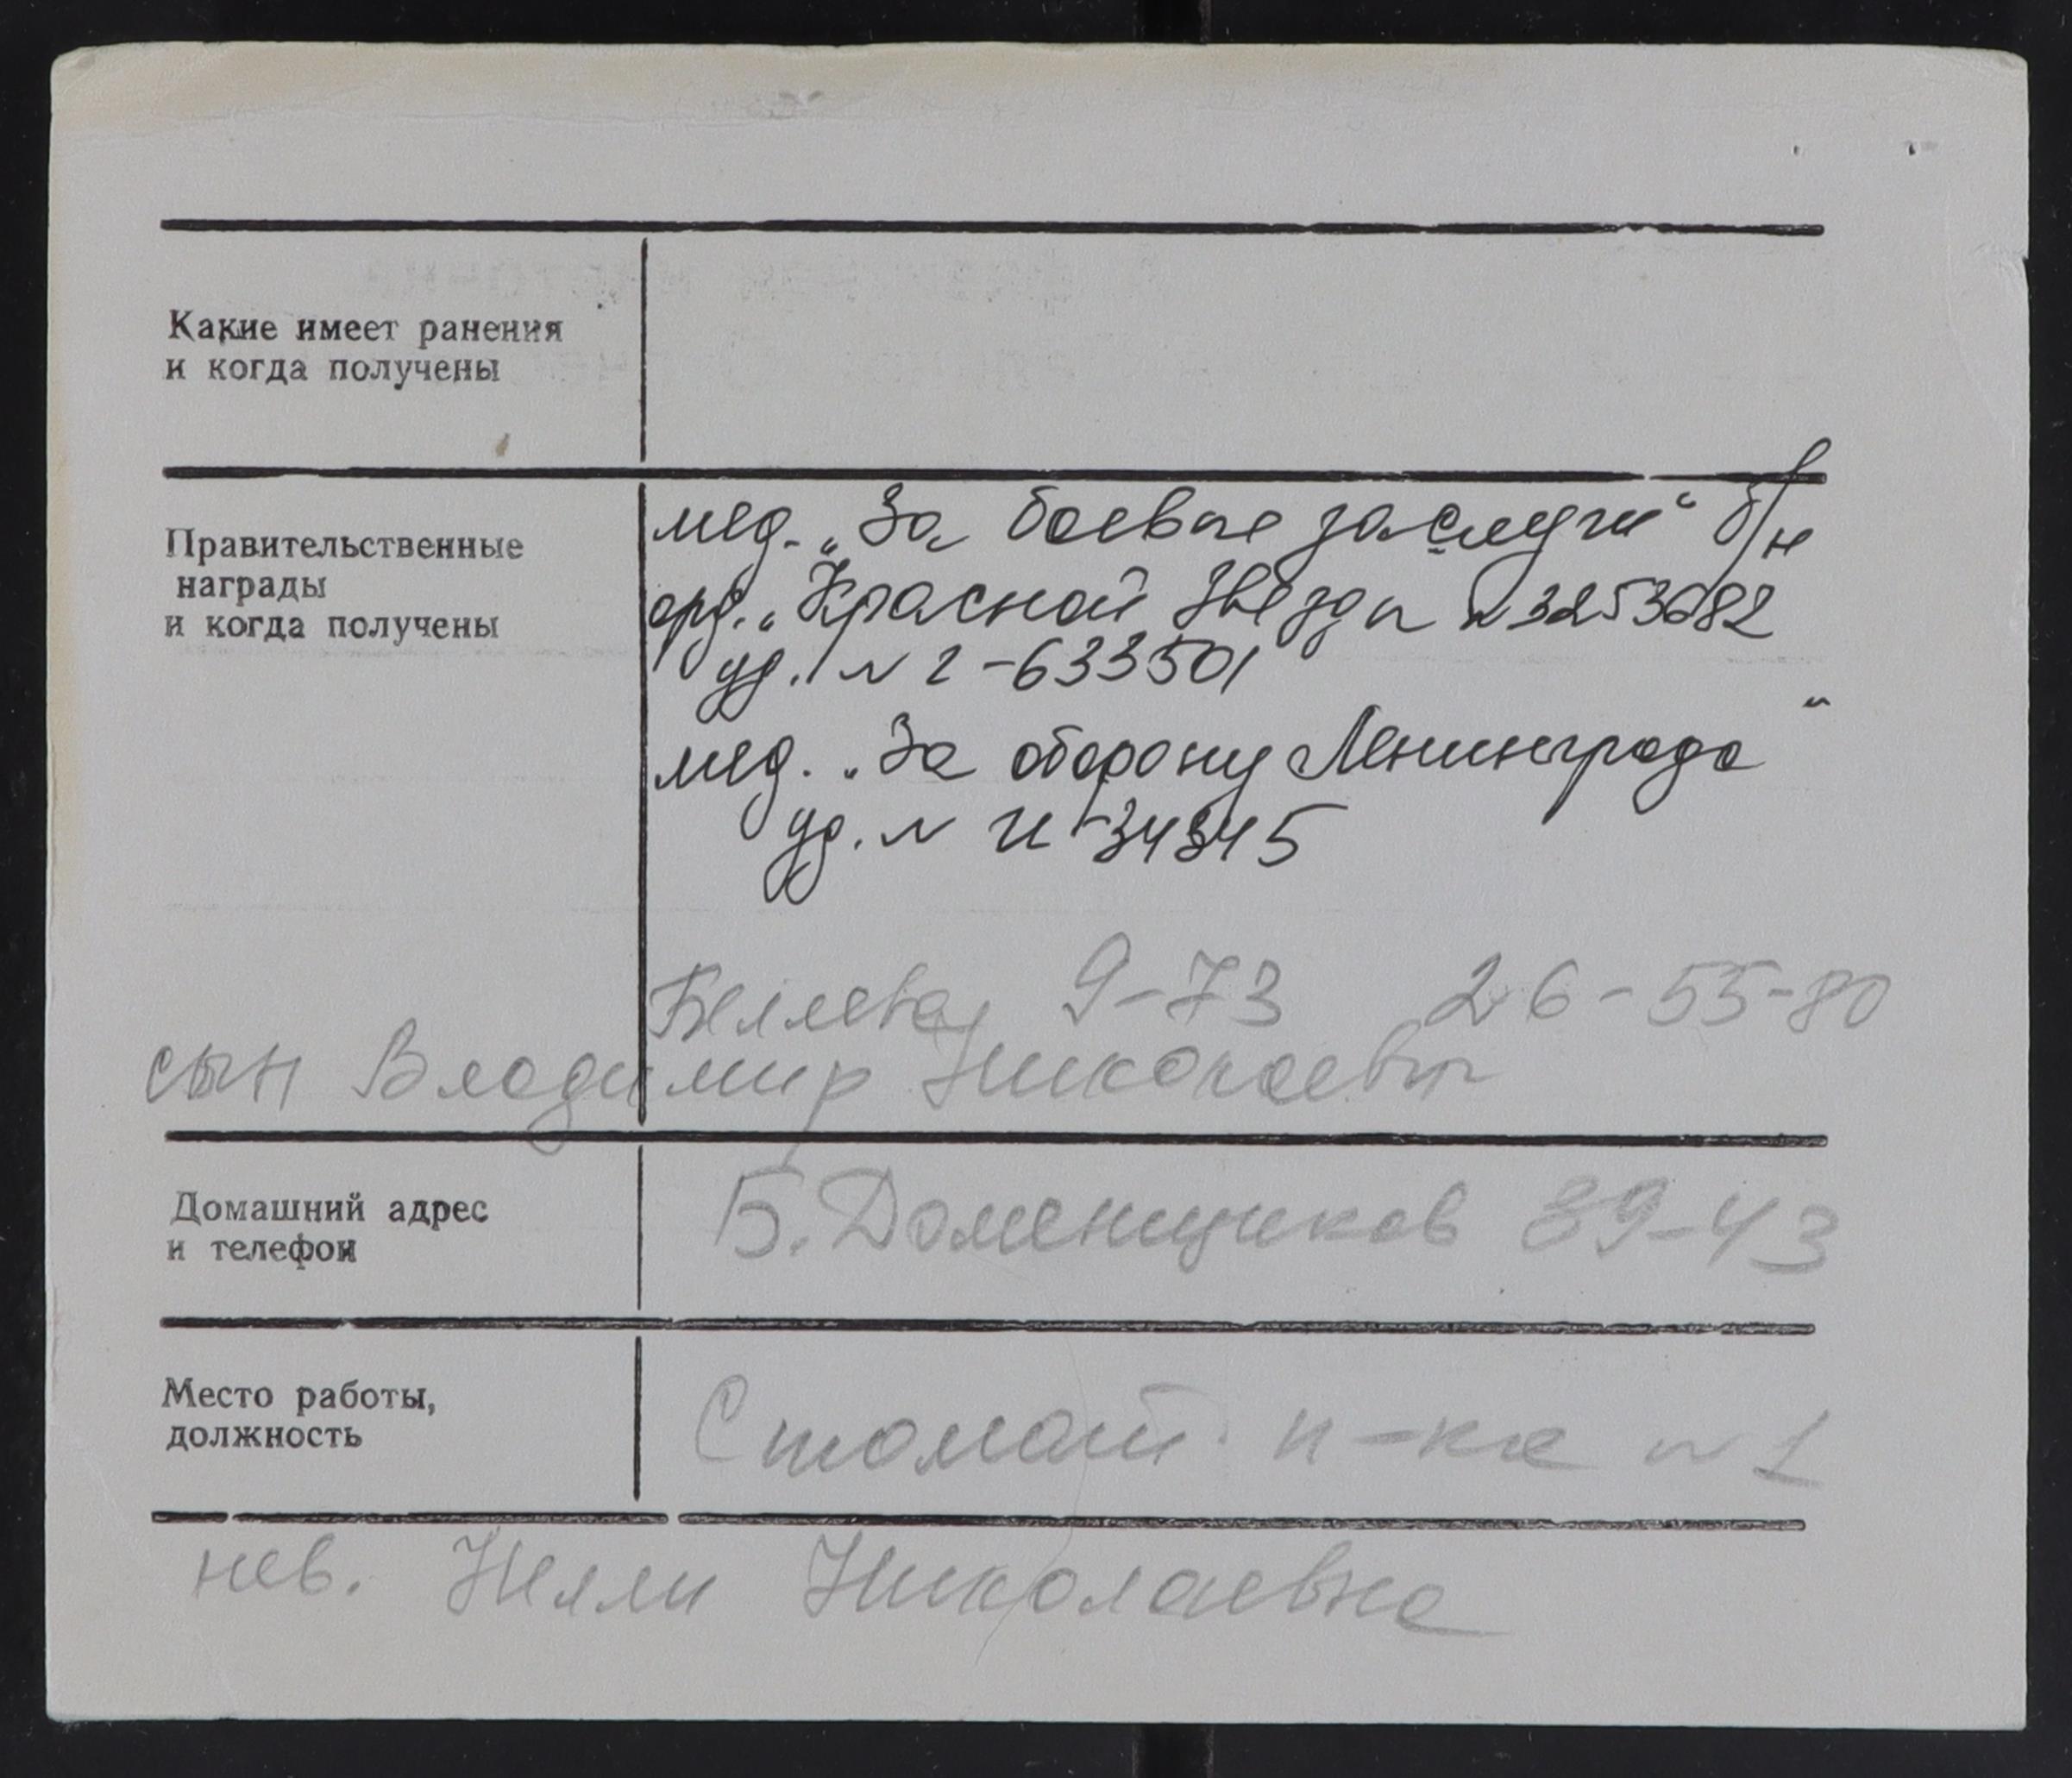 Какие имеет ранения
и когда получены
Правительственные
награды
и когда получены
мед. „За боевые заслуги“ б/н
орд. „Красной Звезды № 3253682
уд. № г-633501
мед. „За оборону Ленинграда“
уд. № И-34345
Беляева 9-73 26-55-80
сын Владимир Николаевич
Домашний адрес
и телефон
Б. Доменщиков 39-43
Место работы,
должность
Стомат. п-ка № 1
нев. Нелли Николаевна